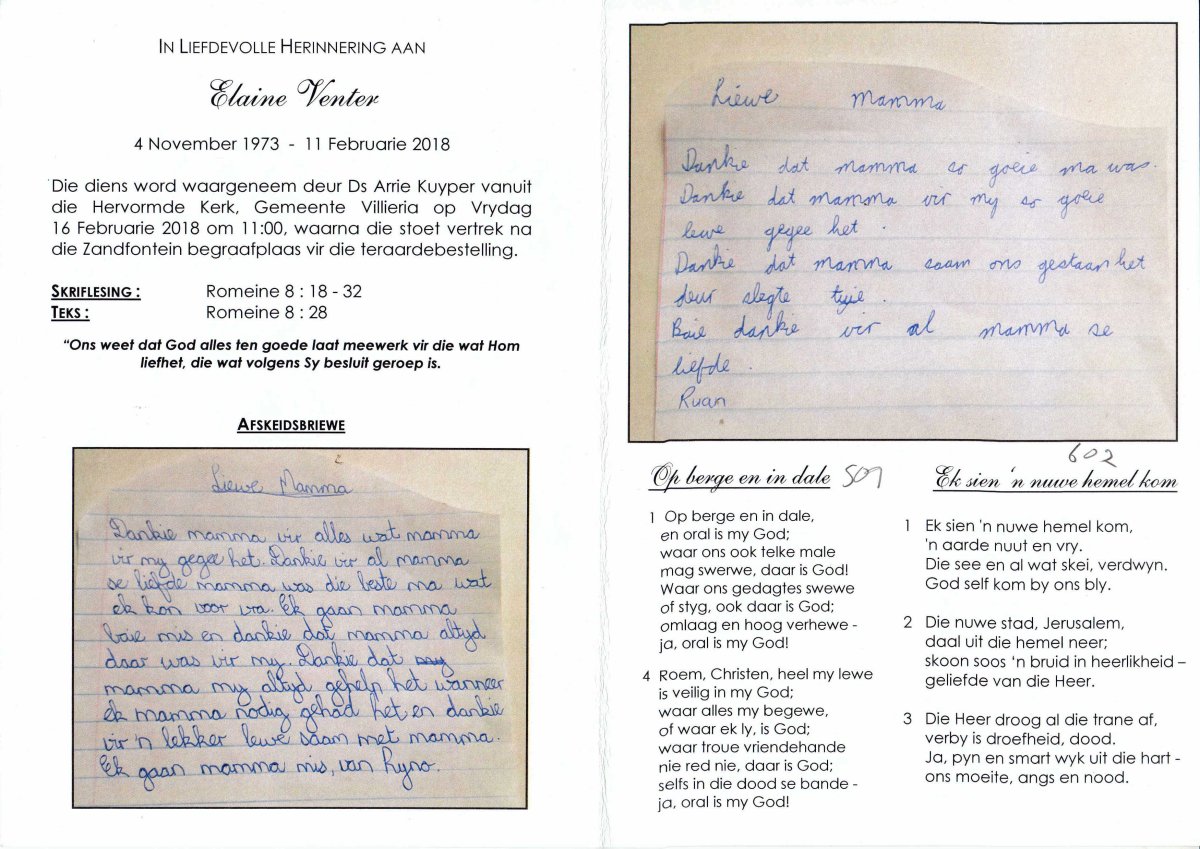 IN LIEFDEVOLLE HERINNERING AAN
Elaine Venter
4 November 1973 - 11 Februarie 2018
Die diens word waargeneem deur Ds Arrie Kuyper vanuit
die Hervormde Kerk, Gemeente Villieria op Vrydag
16 Februarie 2018 om 11:00, waarna die stoet vertrek na
die Zandfontein begraafplaas vir die teraardebestelling.
SKRIFLESING : Romeine 8 : 18 - 32
TEKS : Romeine 8 : 28
"Ons weet dat God alles ten goede laat meewerk vir die wat Hom
liefhet, die wat volgens Sy besluit geroep is.
AFSKEIDSBRIEWE
2
Liewe Mamma
Dankie mamma vir alles wat mamma
vir my gegee het. Dankie vir al mamma
se liefde mamma was die beste ma wat
ek kon voor vra. Ek gaan mamma
baie mis en dankie dat mamma altyd
daar was vir my. Dankie dat my
mamma my altyd gehelp het wanneer
ek mamma nodig gehad het en dankie
vir 'n lekker lewe saam met mamma.
Ek gaan mamma mis, van Ryno.
Liewe mamma
Dankie dat mamma so goeie ma was.
Dankie dat mamma vir my so goeie
lewe gegee het.
Dankie dat mamma saam ons gestaan het
deur slegte
Baie dankie vir al mamma se
liefde.
Ruan
Op berge en in dale 507
1 Op berge en in dale,
en oral is my God;
waar ons ook telke male
mag swerwe, daar is God!
Waar ons gedagtes swewe
of styg, ook daar is God;
omlaag en hoog verhewe -
ja, oral is my God!
4 Roem, Christen, heel my lewe
is veilig in my God;
waar alles my begewe,
of waar ek ly, is God;
waar troue vriendehande
nie red nie, daar is God;
selfs in die dood se bande -
ja, oral is my God!
602
Ek sien 'n nuwe hemel kom
1 Ek sien 'n nuwe hemel kom,
'n aarde nuut en vry.
Die see en al wat skei, verdwyn.
God self kom by ons bly.
2 Die nuwe stad, Jerusalem,
daal uit die hemel neer;
skoon soos 'n bruid in heerlikheid –
geliefde van die Heer.
3 Die Heer droog al die trane af,
verby is droefheid, dood.
Ja, pyn en smart wyk uit die hart -
ons moeite, angs en nood.